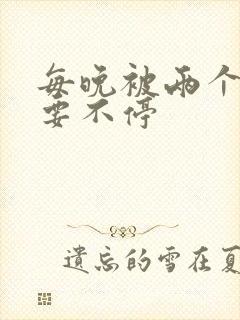 每晚被兩个
要不停
遺忘的雪在夏